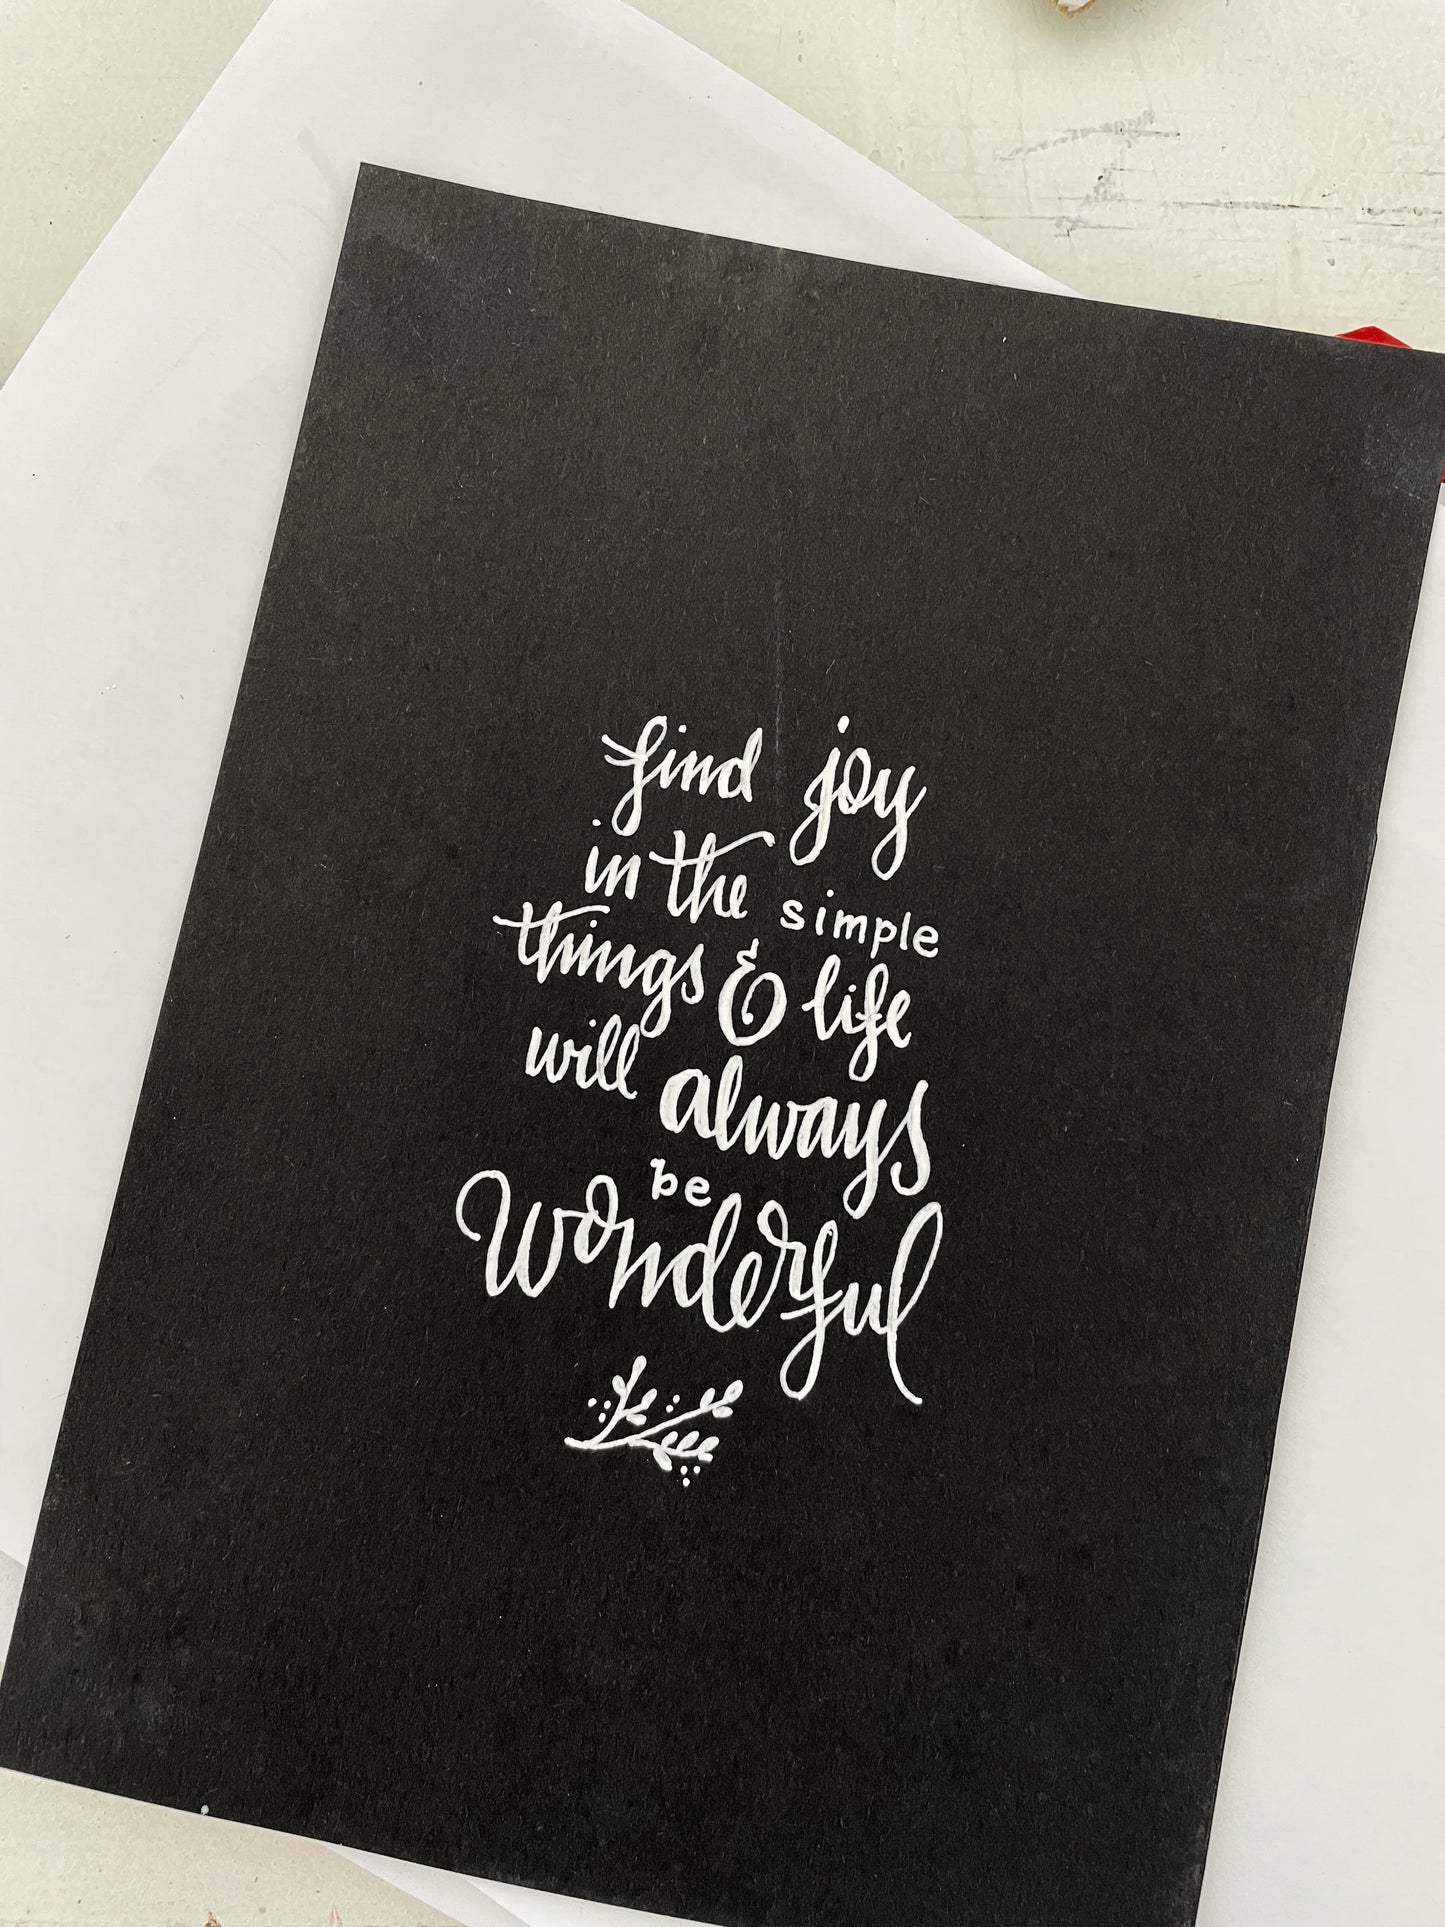 find joy
in the simple
things & life
will always
be
wonderful